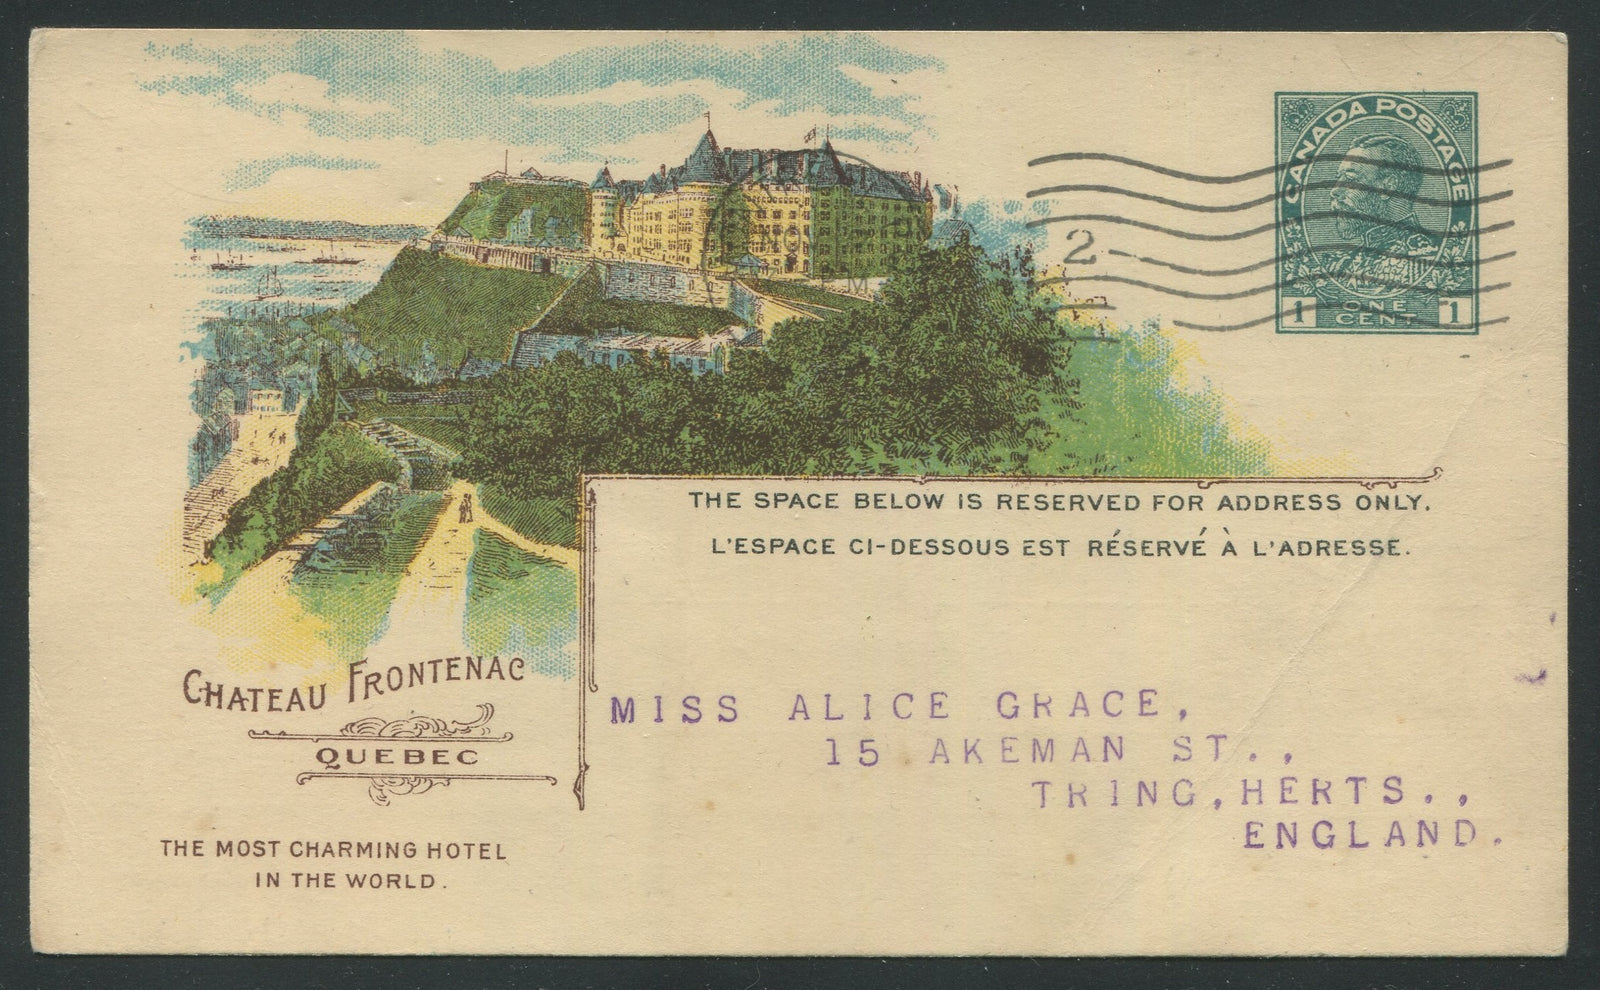 CANADA POSTAGE
1 ONE CENT 1
2
THE SPACE BELOW IS RESERVED FOR ADDRESS ONLY.
L'ESPACE CI-DESSOUS EST RÉSERVÉ À L'ADRESSE.
CHATEAU FRONTENAC
QUEBEC
THE MOST CHARMING HOTEL
IN THE WORLD.
MISS ALICE GRACE,
15 AKEMAN ST.,
TRING, HERTS.,
ENGLAND.